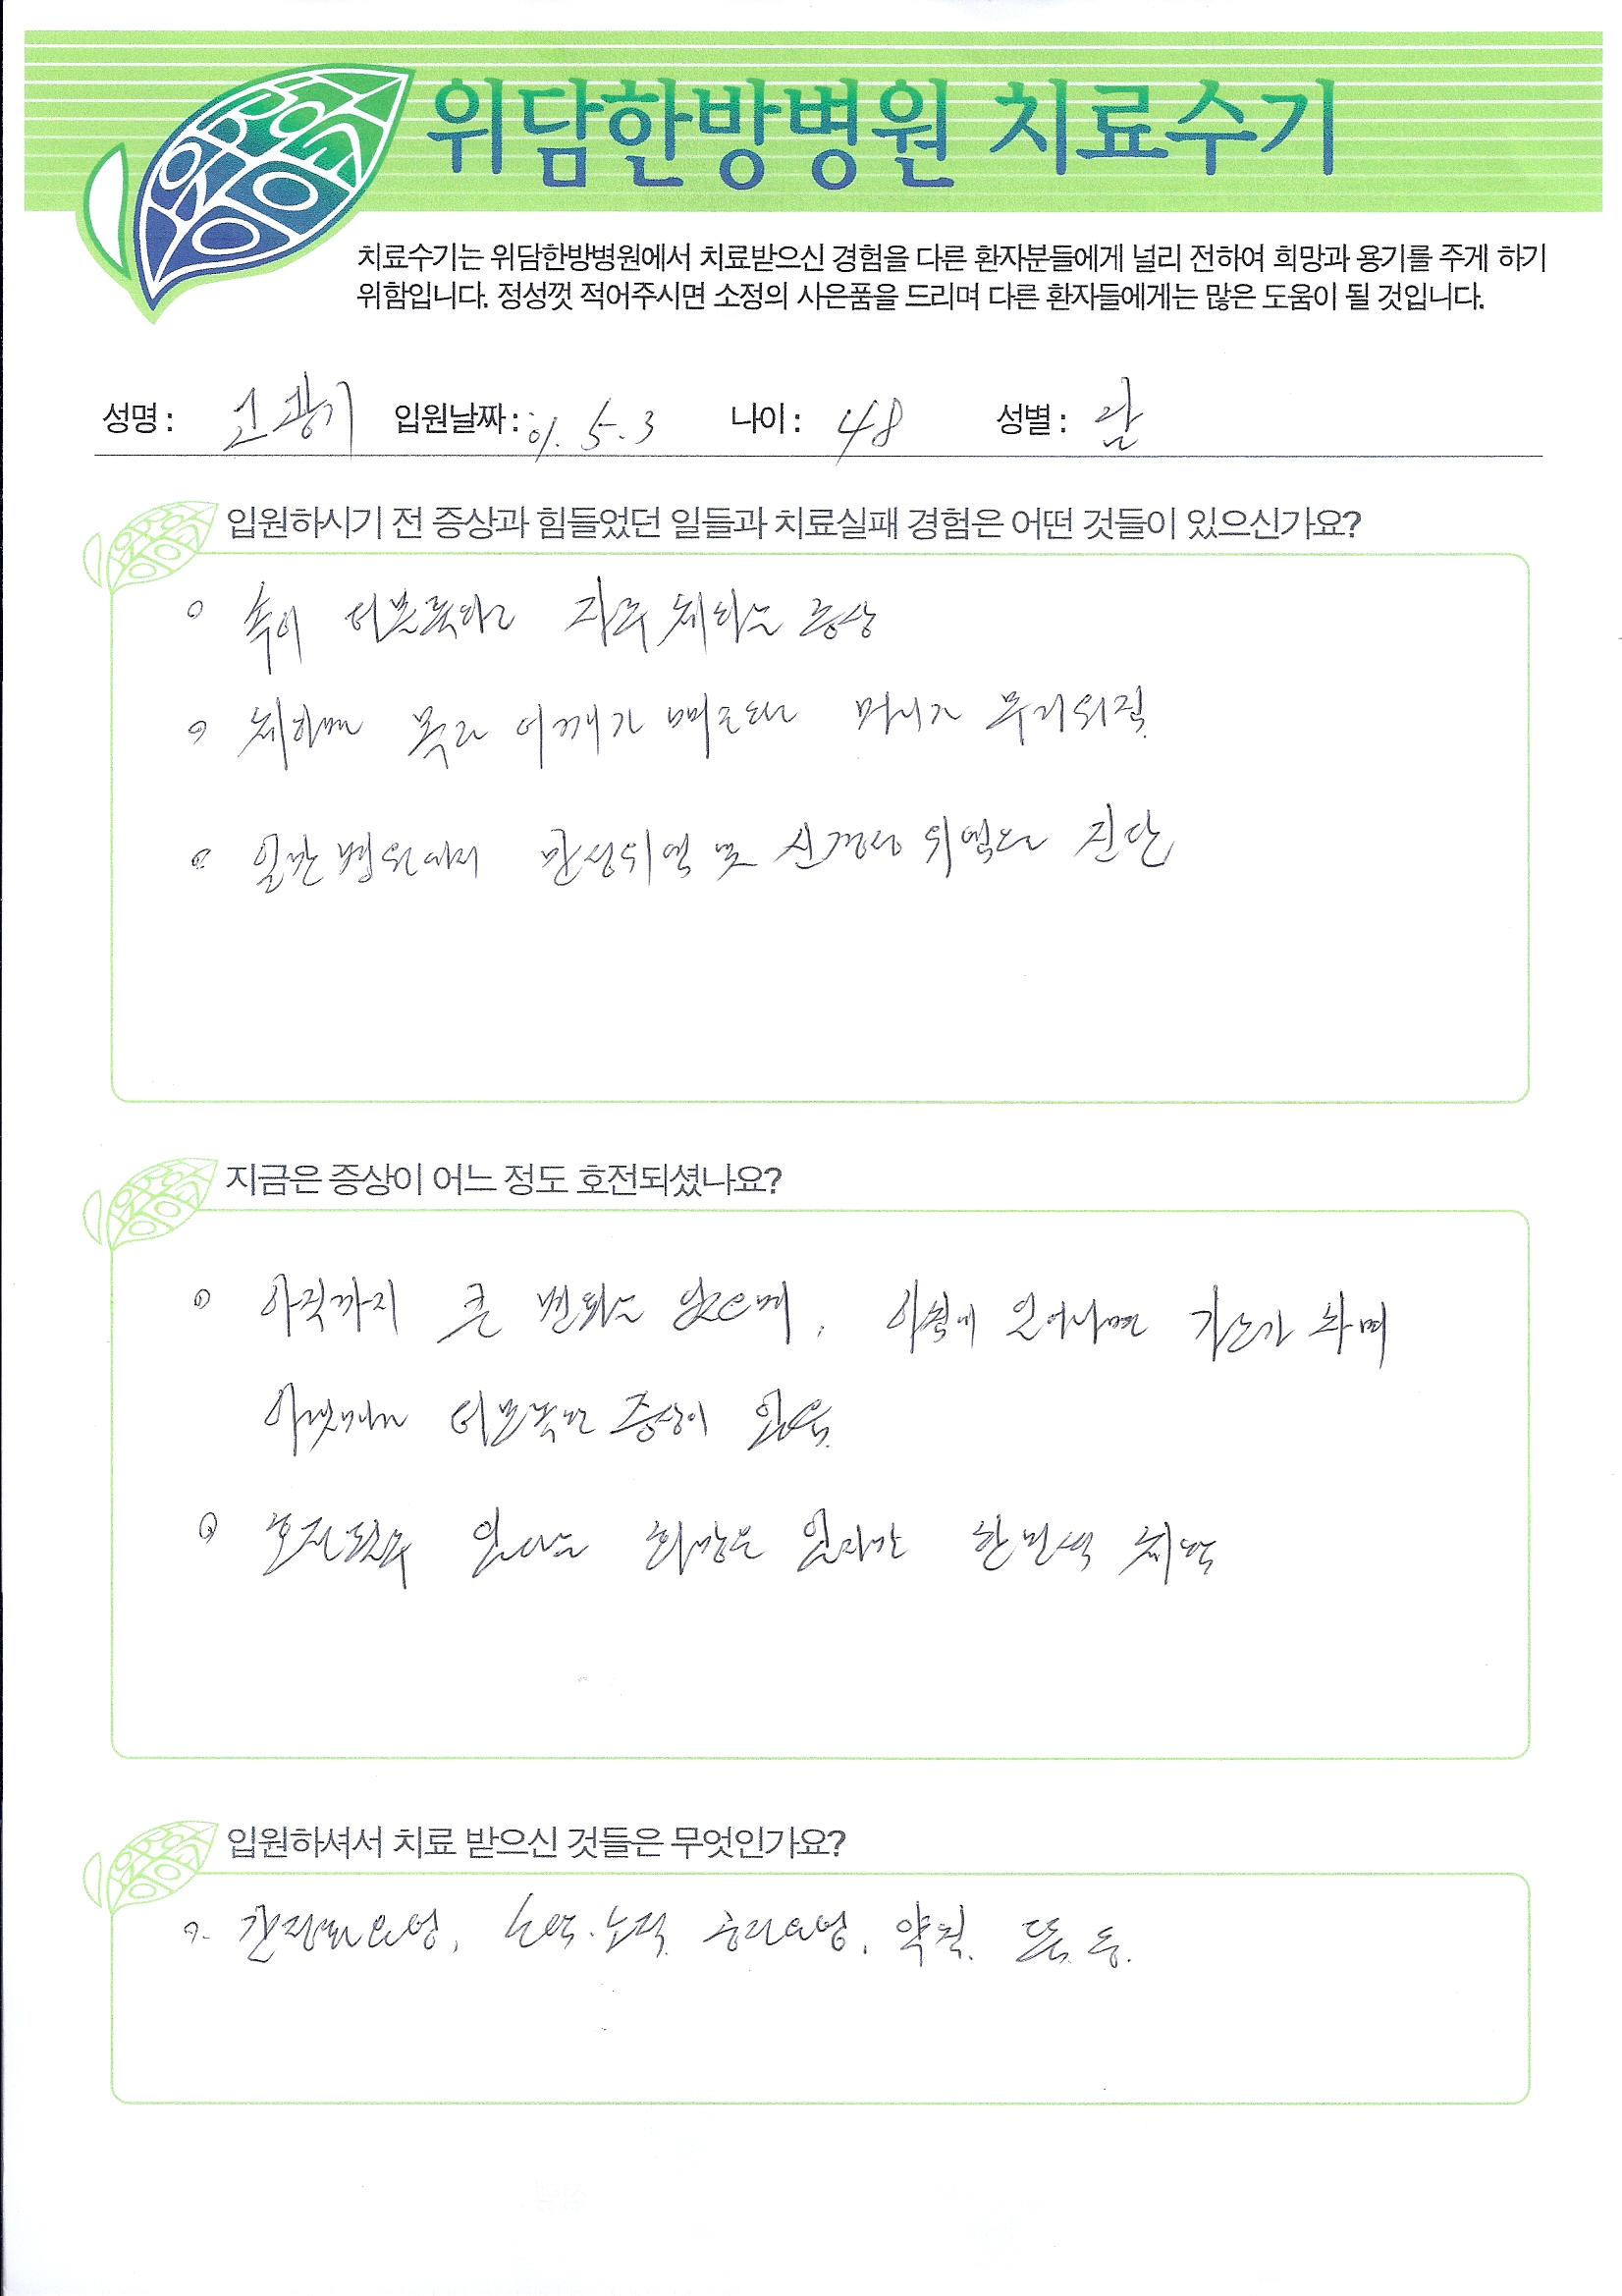 위담한방병원 치료수기
치료수기는 위담한방병원에서 치료받으신 경험을 다른 환자분들에게 널리 전하여 희망과 용기를 주게 하기
위함입니다. 정성껏 적어주시면 소정의 사은품을 드리며 다른 환자들에게는 많은 도움이 될 것입니다.
성명 : 고광기 입원날짜 : 5. 3 나이 : 48 성별 : 남
입원하시기 전 증상과 힘들었던 일들과 치료실패 경험은 어떤 것들이 있으신가요?
속이 더부룩하고 자주 체하는 증상
체하면 목과 어깨가 머리가 무거워짐.
일반병원에서 만성위염 및 신경성 위염으로 진단
지금은 증상이 어느 정도 호전되셨나요?
아직까지 큰 변화는 없으며, 아침에 일어나면 가스가 차며
더부룩한 증상이 있음.
호전될수 있다는 희망을 한번씩
입원하셔서 치료 받으신 것들은 무엇인가요?
요법, 약침, 뜸, 등.